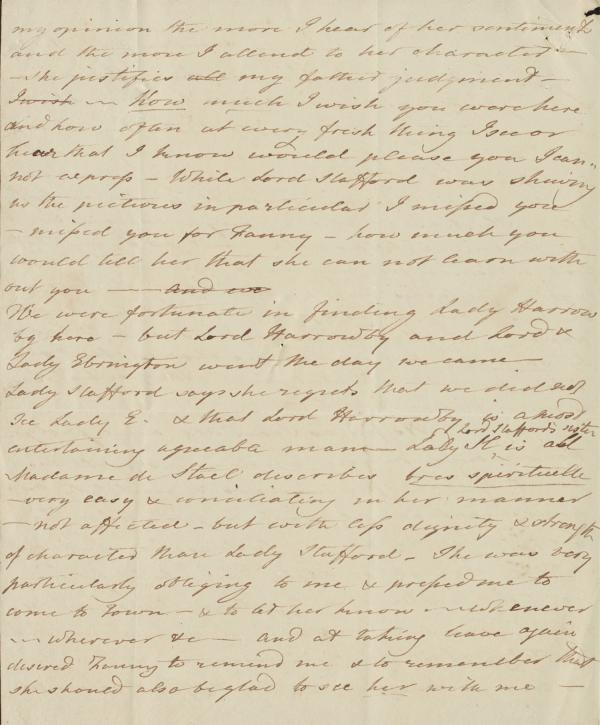 my opinion the more I hear of her sentiments
and the more I attend to her character —
— She justifies all my father's judgment —
I wish — How much I wish you were here
and how often at every fresh thing I see or
hear that I know would please you I can-
not express — While Lord Stafford was shewing
us the pictures in particular I missed you
— missed you for Fanny — how much you
would tell her that she can not learn with
out you — and we
We were fortunate in finding Lady Harrow
by here — but Lord Harrowby and Lord &
Lady Ebrington went the day we came —
Lady Stafford says she regrets that we did not
see Lady E. & that Lord Harrowby is a most
entertaining agreeable man — Lady H, Lord Stafford's sister is all
Madame de Stael describes très spirituelle
— very easy & conciliating in her manner
— not affected — but with less dignity & strength
of character than Lady Stafford — She was very
particularly obliging to me & pressed me to
come to Town — & to let her know — whenever
— wherever &c — and at taking leave again
desired Fanny to remind me & to remember that
she should also be glad to see her with me —